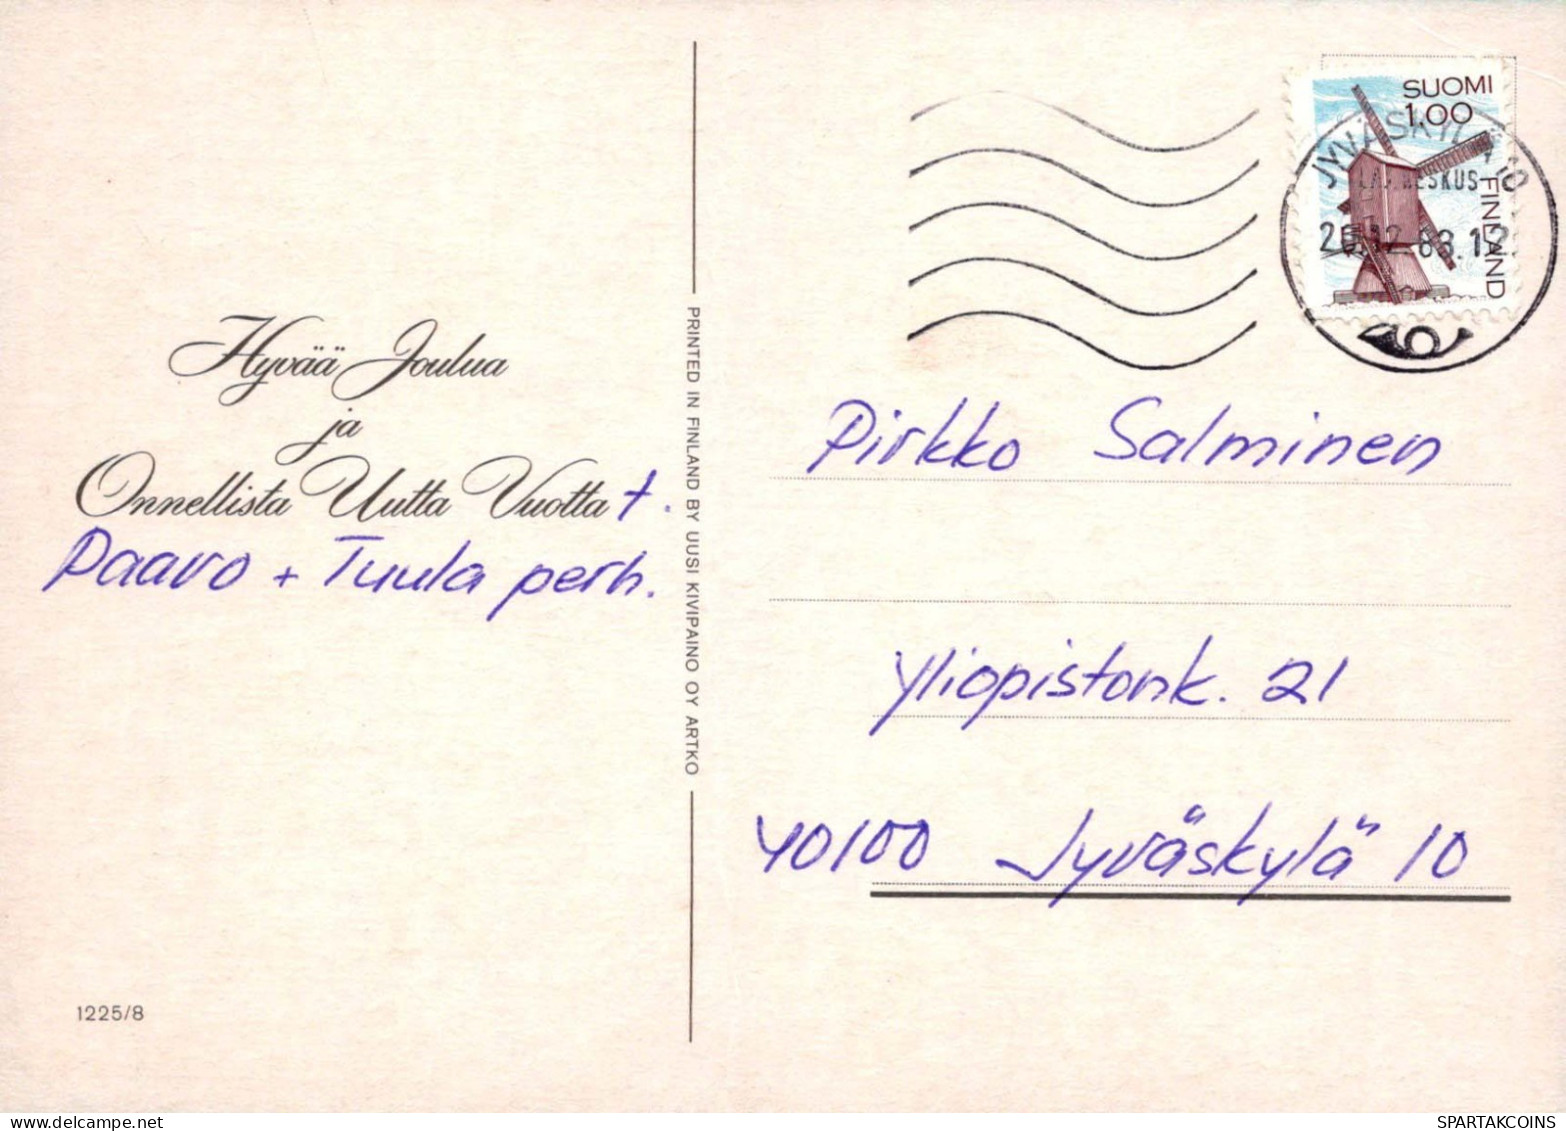 Hyvää Joulua
ja
Onnellista Uutta Vuotta t.
Paavo + Tuula perh.
1225/8
PRINTED IN FINLAND BY UUSI KIVIPAINO OY ARTKO
SUOMI
1.00
FINLAND
JYVÄSKYLÄ 10
12.83.12
Pirkko Salminen
Yliopistonk. 21
40100 Jyväskylä 10
SPARTAKCOINS